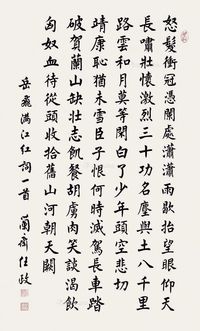 怒髮衝冠憑闌處瀟瀟雨歇抬望眼仰天
長嘯壯懷激烈三十功名塵與土八千里
路雲和月莫等閒白了少年頭空悲切
靖康恥猶未雪臣子恨何時滅駕長車踏
破賀蘭山缺壯志飢餐胡虜肉笑談渴飲
匈奴血待從頭收拾舊山河朝天闕
岳飛滿江紅詞一首 蘭齋任政